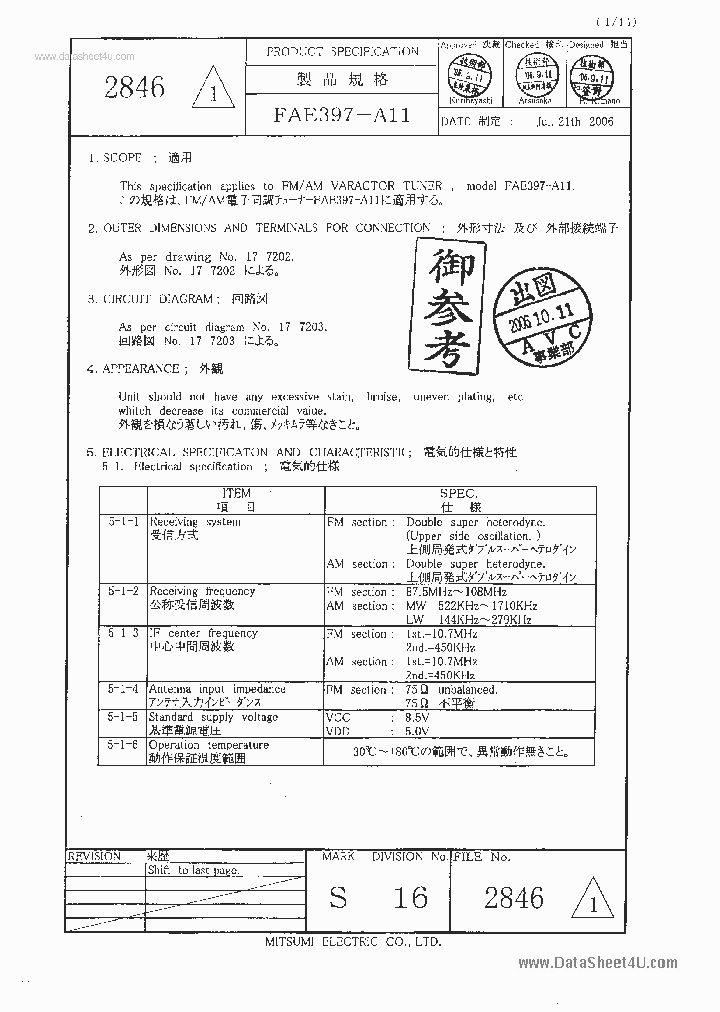 (1/11)
www.datasheet4u.com
2846
1
PRODUCT SPECIFICATION
製品規格
FAE397-A11
Approved 決裁 Checked 検印 Designed 担当
技術部
'06.9.11
技術部
'06.9.11
技術部
'06.9.11
Kuribayashi
DATE 制定 : Jul. 21th 2006
1. SCOPE ; 適用
This specification applies to FM/AM VARACTOR TUNER , model FAE397-A11.
この規格は、FM/AM電子同調チューナーFAE397-A11に適用する。
2. OUTER DIMENSIONS AND TERMINALS FOR CONNECTION ; 外形寸法 及び 外部接続端子
As per drawing No. 17 7202.
外形図 No. 17 7202 による。
御参考
出図
2006.10.11
AVC
事業部
3. CIRCUIT DIAGRAM ; 回路図
As per circuit diagram No. 17 7203.
回路図 No. 17 7203 による。
4. APPEARANCE ; 外観
Unit should not have any excessive stain, bruise, uneven plating, etc
whitch decrease its commercial value.
外観を損なう著しい汚れ, 傷, メッキムラ等なきこと。
5. ELECTRICAL SPECIFICATON AND CHARACTERISTIC ; 電気的仕様と特性
5-1. Electrical specification ; 電気的仕様
ITEM SPEC.
項 目 仕 様
5-1-1 Receiving system FM section : Double super heterodyne.
受信方式 (Upper side oscillation.)
上側局発式ダブルスーパーヘテロダイン
AM section : Double super heterodyne.
上側局発式ダブルスーパーヘテロダイン
5-1-2 Receiving frequency FM section : 87.5MHz～108MHz
公称受信周波数 AM section : MW 522KHz～1710KHz
LW 144KHz～279KHz
5-1-3 IF center frequency FM section : 1st.=10.7MHz
中心中間周波数 2nd.=450KHz
AM section : 1st.=10.7MHz
2nd.=450KHz
5-1-4 Antenna input impedance FM section : 75Ω unbalanced.
アンテナ入力インピーダンス 75Ω 不平衡
5-1-5 Standard supply voltage VCC : 8.5V
基準電源電圧 VDD : 5.0V
5-1-6 Operation temperature -30℃～+80℃の範囲で、異常動作無きこと。
動作保証温度範囲
REVISION 来歴
Shift to last page.
MARK DIVISION No. FILE No.
S 16 2846 1
MITSUMI ELECTRIC CO., LTD.
www.DataSheet4U.com